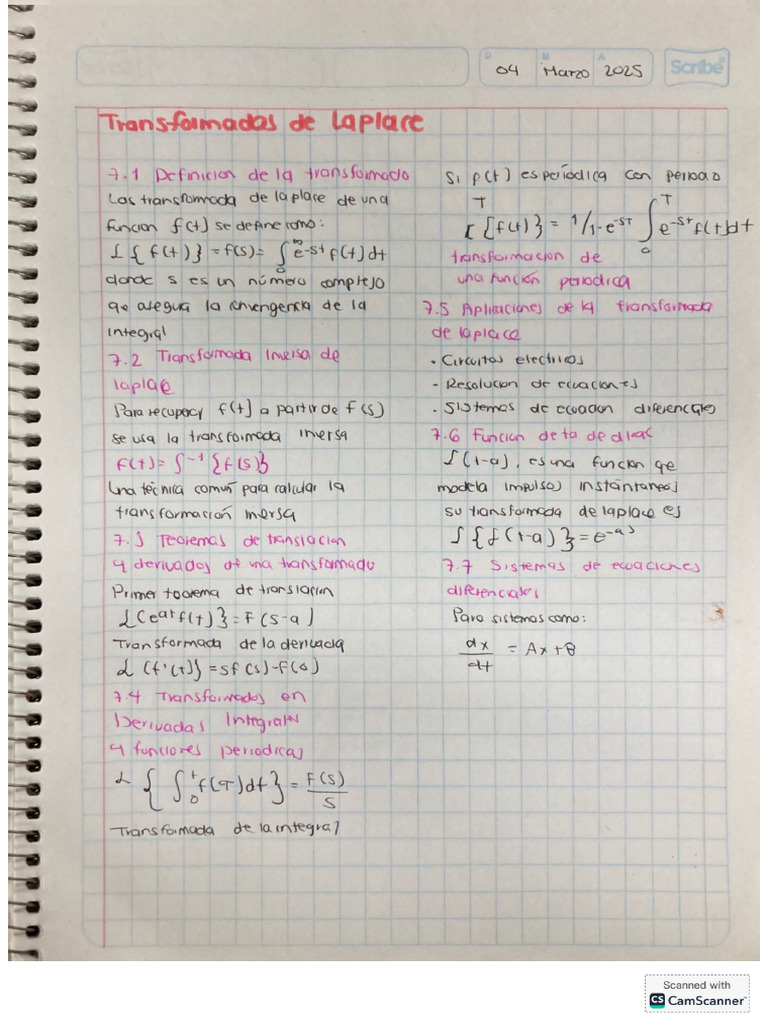 D M A
04 Marzo 2025
Scribe
Transformadas de Laplace
7.1 Definicion de la transformada
Las transformada de laplace de una
funcion f(t) se define como:
L{f(t)} = f(s) = ∫₀^∞ e^-st f(t)dt
donde s es un número complejo
qe asegua la convengencia de la
integral
7.2 Transformada Inversa de
laplace
Para recuperar f(t) a partir de F(s)
se usa la transformada inversa
f(t) = ∫^-1 {f(s)}
Una técnica comun para calcular la
transformación inversa
7.3 Teoremas de translacion
y derivadas de una transformada
Primer teorema de translacion
L(e^at f(t)} = F(s-a)
Transformada de la derivada
L(f'(t)} = sf(s)-f(0)
7.4 Transformados en
Derivadas Integrales
y funciones periodicas
L{∫₀^t f(T)dt} = F(s)/s
Transformada de la integral
Si f(t) es períodica con periodo
T
L{f(t)} = 1/1-e^-sT ∫₀^T e^-st f(t)dt
transformacion de
una función periodica
7.5 Aplicaciones de la transformada
de laplace
• Circuitos electricos
- Resolucion de ecuaciones
• Sistemas de ecuacion diferenciales
7.6 Funcion delta de dirac
f(t-a), es una funcion qe
modela impulsos instántaneos
su transformada de laplace es
∫{f(t-a)} = e^-as
7.7 Sistemas de ecuaciones
diferenciales
Para sistemas como:
dx/dt = Ax+B
Scanned with
CS CamScanner